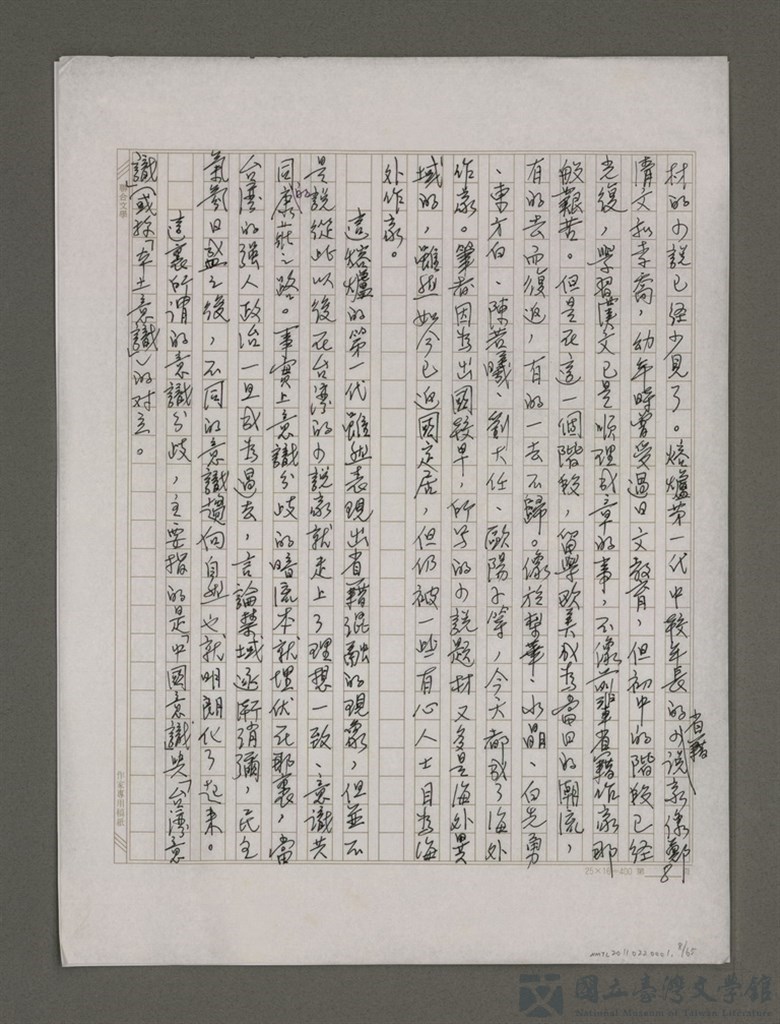 材的小說已经少見了。熔爐第一代中較年長的省籍小說家像鄭
清文和李喬，幼年時曾受過日文教育，但初中的階段已经
光復，學習漢文已是順理成章的事，不像前輩省籍作家那
般艱苦。但是在這一個階段，留學欧美成为當日的潮流，
有的去而復返，有的一去不歸。像於梨華、水晶、白先勇
、東方白、陳若曦、劉大任、歐陽子等，今天都成了海外
作家。筆者因为出國較早，所寫的小說題材又多是海外異
域的，雖然如今已返國定居，但仍被一些有心人士目为海
外作家。
這熔爐的第一代雖然表現出省籍混融的現象，但並不
是說從此以後在台湾的小說家就走上了理想一致、意識共
同的康莊之路。事實上意識分歧的暗流本就埋伏在那裏，當
台湾的强人政治一旦成为過去，言論禁域逐漸消彌，民主
氣氛日盛之後，不同的意識趨向自然也就明朗化了起来。
這裏所谓的意識分歧，主要指的是「中國意識」與「台湾意
識」（或称「本土意識」）的对立。
8
25×16=400 第 頁
聯合文學
作家專用稿紙
NMTL20110220001. 8/65
國立臺灣文學館
National Museum of Taiwan Literature